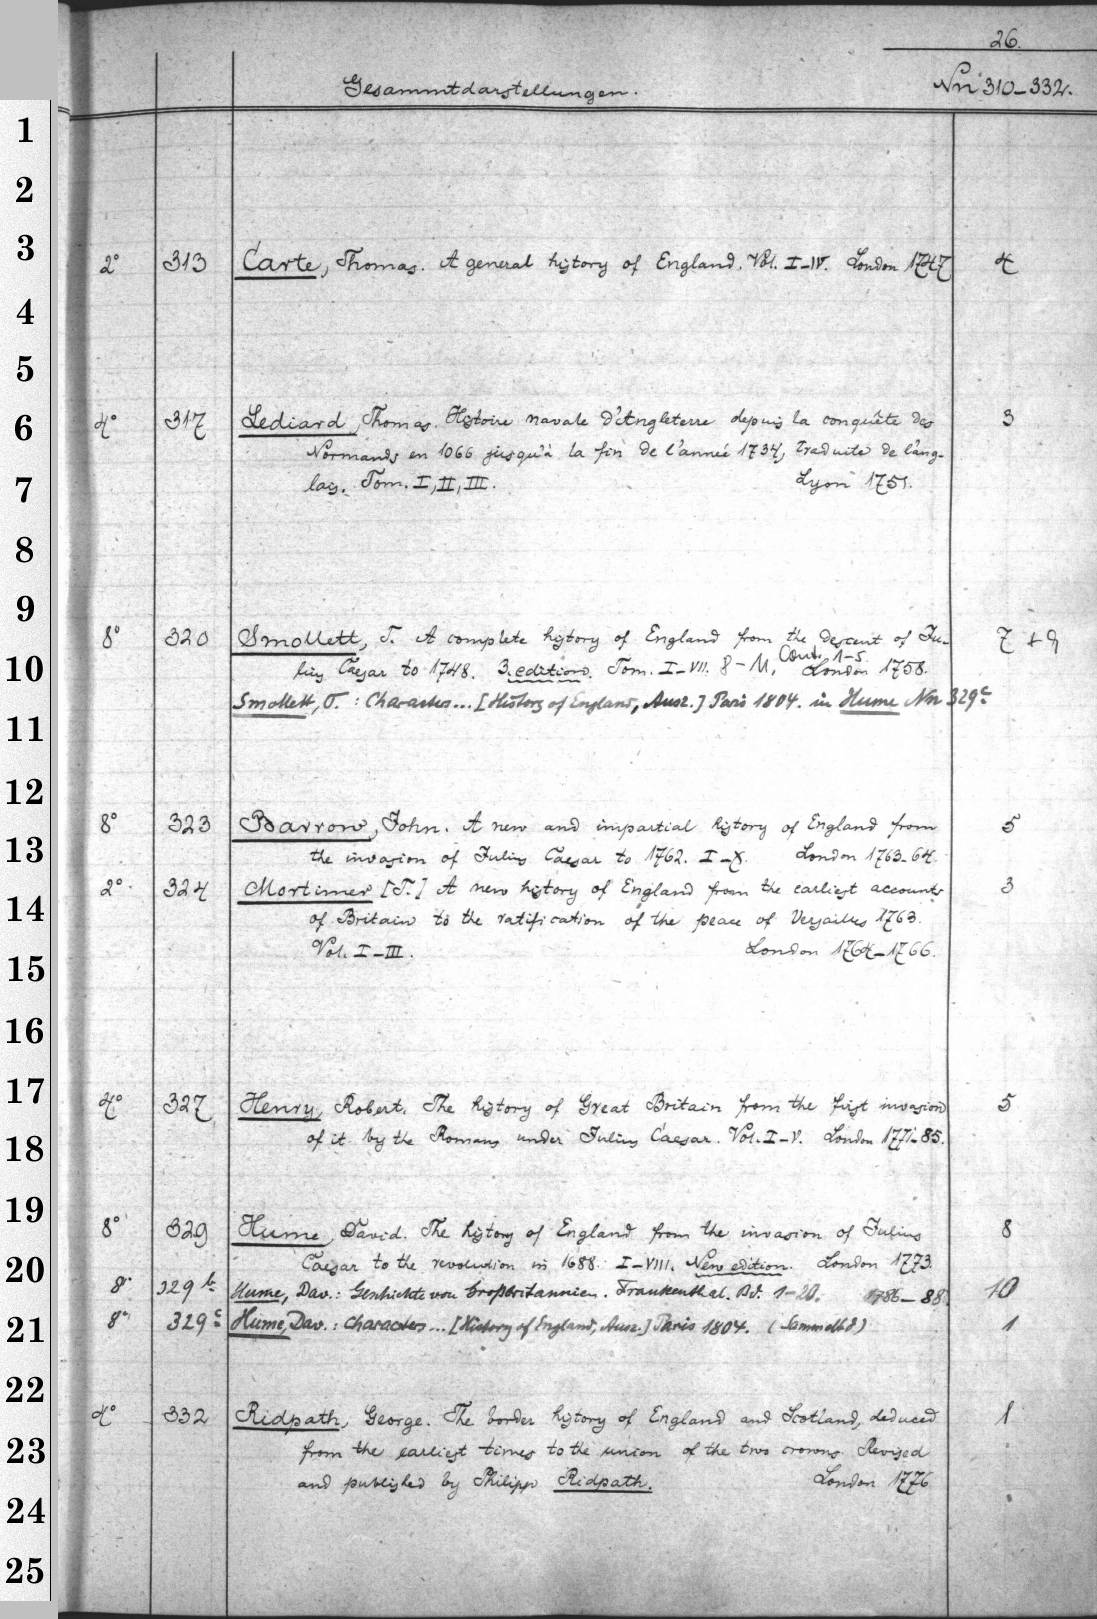 26.
Gesammtdarstellungen. Nn 310-332.
1
2
3
2° 313 Carte, Thomas. A general history of England. Vol. I-IV. London 1747 4
4
5
6
4° 317 Lediard, Thomas. Histoire navale d'Angleterre depuis la conquête des 3
Normands en 1066 jusqu'à la fin de l'année 1734, traduite de l'ang-
7
lais. Tom. I, II, III. Lyon 1751.
8
9
8° 320 Smollett, T. A complete history of England from the descent of Ju- 7 + 9
10
lius Caesar to 1748. 3. edition. Tom. I-VII. 8-11, Cont. 1-5. London 1758.
Smollett, T. : Characters... [History of England, Ausz.] Paris 1804. in Hume Nn 329c
11
12
8° 323 Barrow, John. A new and impartial history of England from 5
13
the invasion of Julius Caesar to 1762. I-X. London 1763-64.
2° 324 Mortimer [T.] A new history of England from the earliest accounts 3
14
of Britain to the ratification of the peace of Versailles 1763.
Vol. I-III. London 1764-1766.
15
16
17
4° 327 Henry, Robert. The history of Great Britain from the first invasion 5
18
of it by the Romans under Julius Caesar. Vol. I-V. London 1771-85.
19
8° 329 Hume, David. The history of England from the invasion of Julius 8
20
Caesar to the revolution in 1688. I-VIII. New edition. London 1773.
8° 329b Hume, Dav.: Geschichte von Großbritannien. Frankenthal. Bd. 1-20. 1786-88 10
21
8° 329c Hume, Dav.: Characters... [History of England, Ausz.] Paris 1804. (Sammelbd) 1
22
4° 332 Ridpath, George. The border history of England and Scotland, deduced 1
23
from the earliest times to the union of the two crowns. Revised
and published by Philipp Ridpath. London 1776
24
25